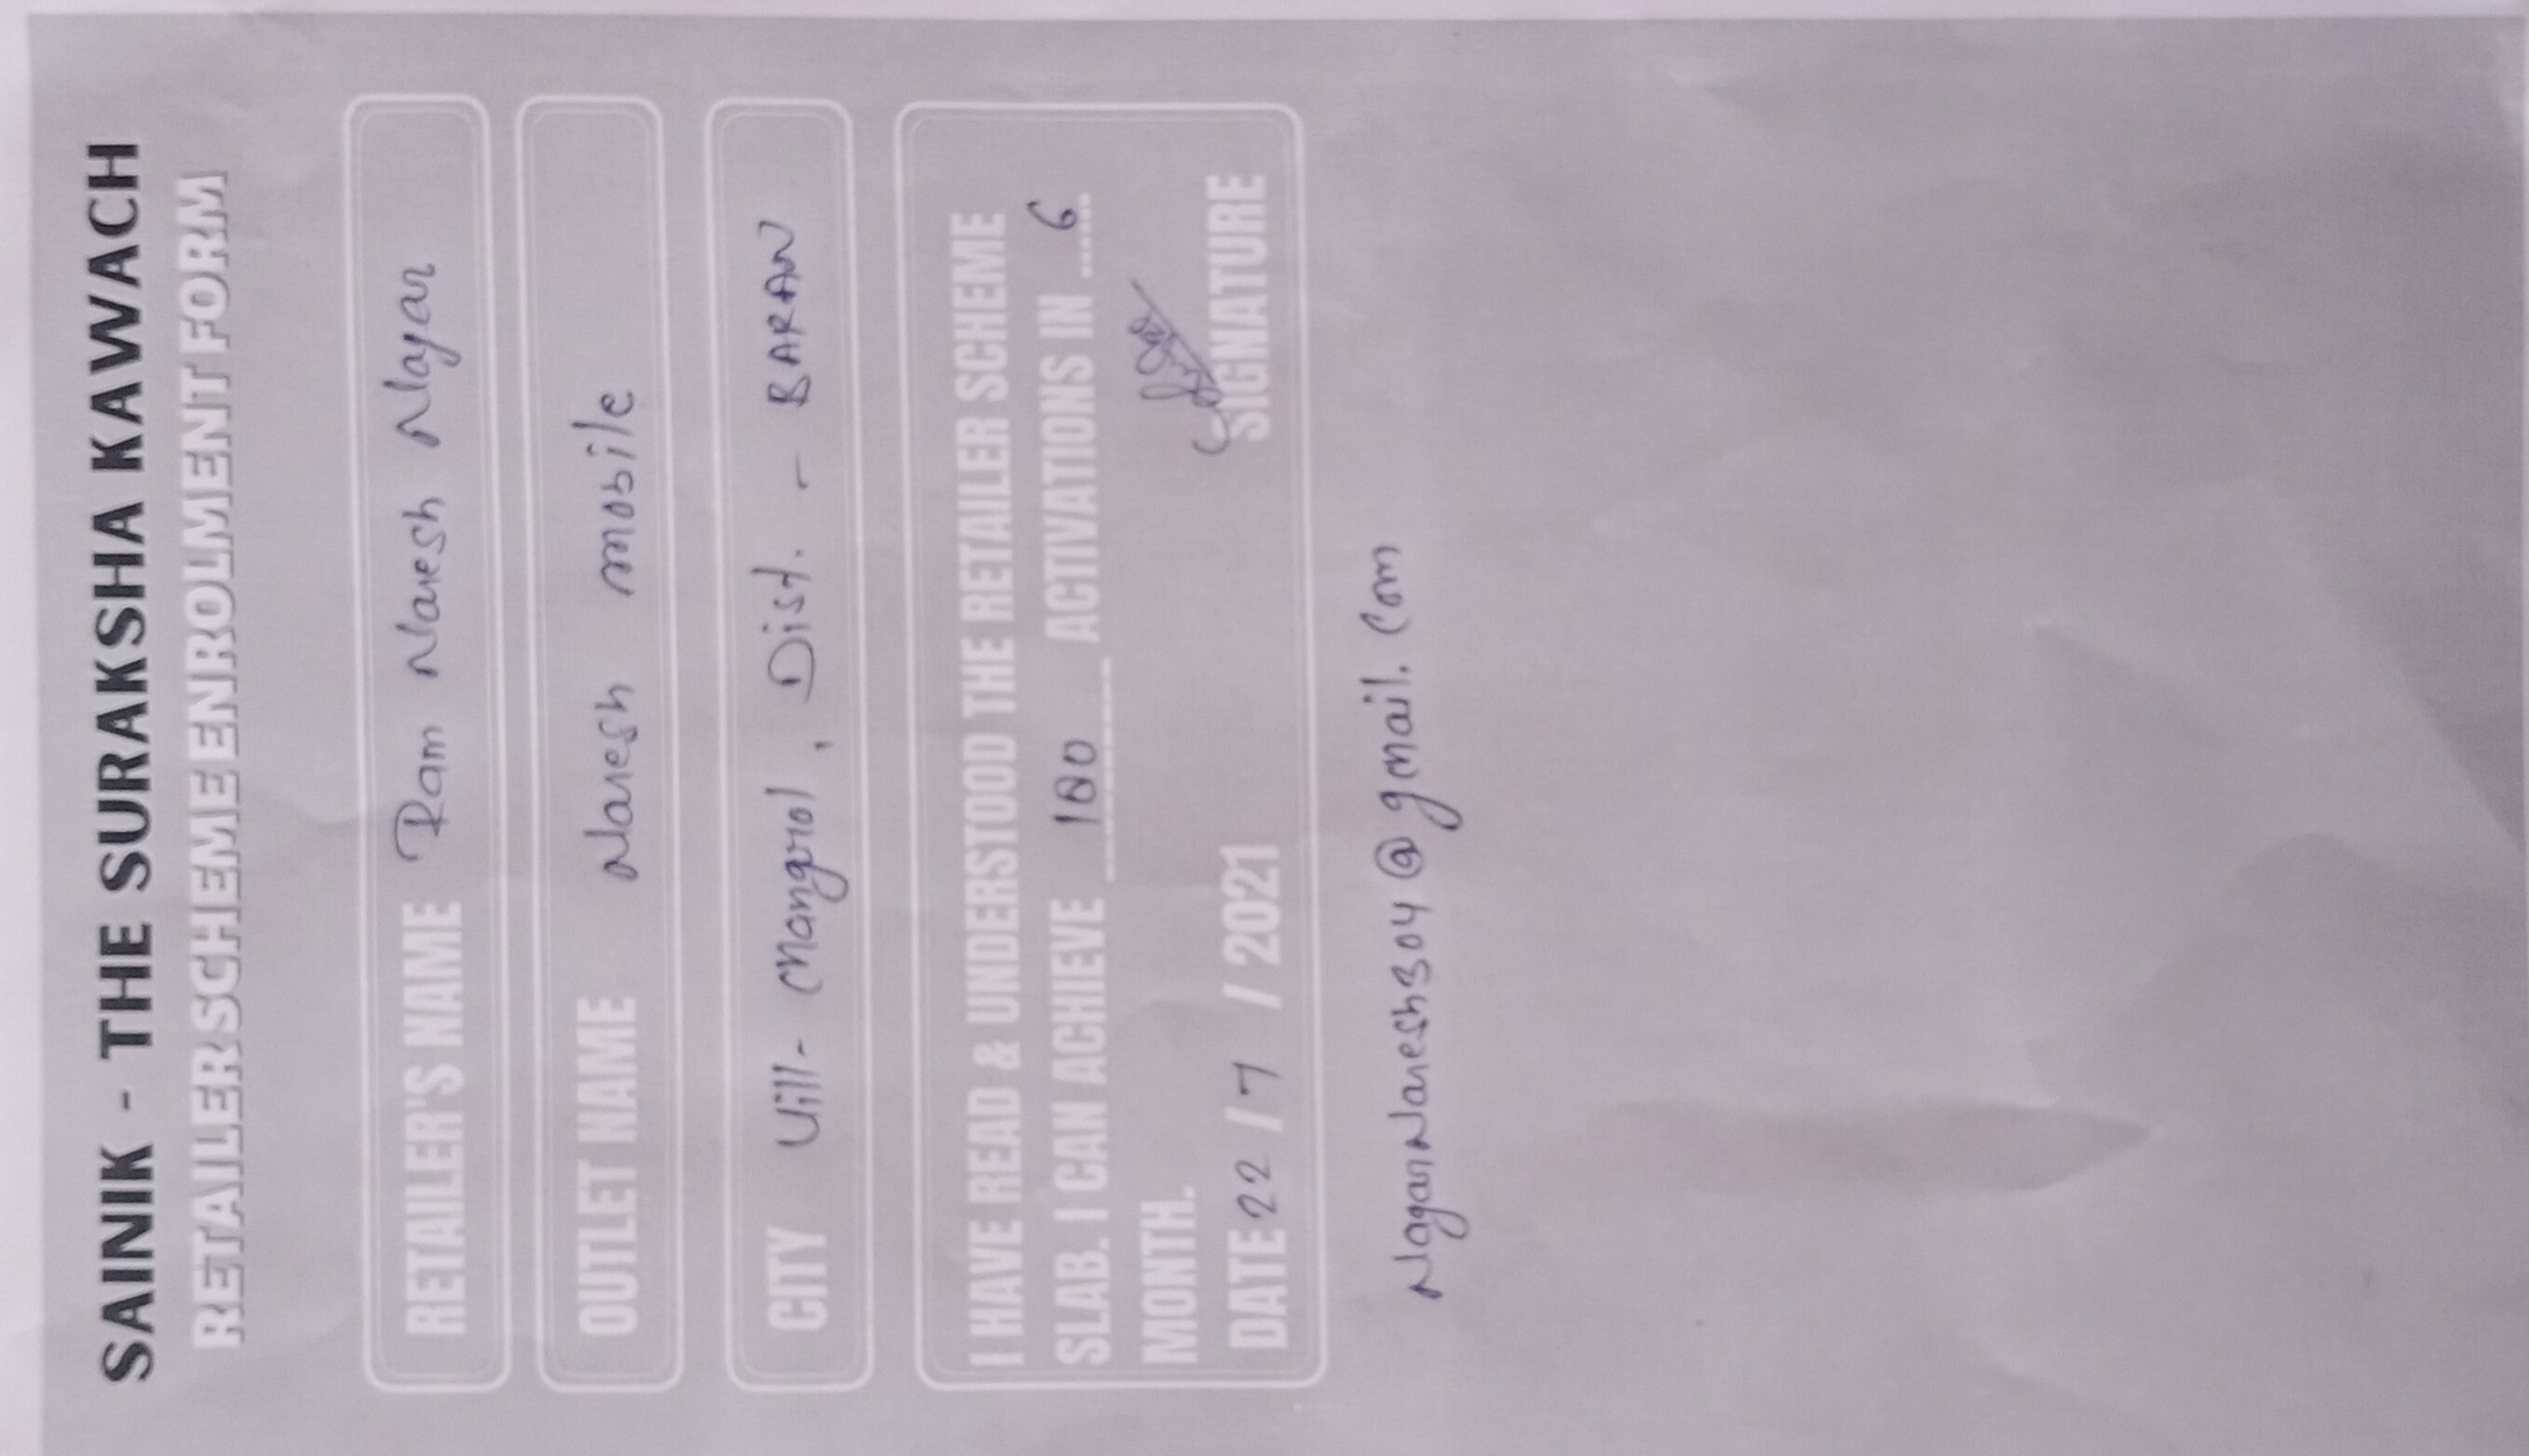 SAINIK - THE SURAKSHA KAWACH
RETAILER SCHEME ENROLMENT FORM
RETAILER'S NAME Ram Naresh Nagar
OUTLET NAME Naresh mobile
CITY Vill- Mangrol, Dist. - BARAN
I HAVE READ & UNDERSTOOD THE RETAILER SCHEME
SLAB. I CAN ACHIEVE 100 ACTIVATIONS IN 6
MONTH.
DATE 22 / 7 / 2021 SIGNATURE
NagarNaresh304@gmail.com